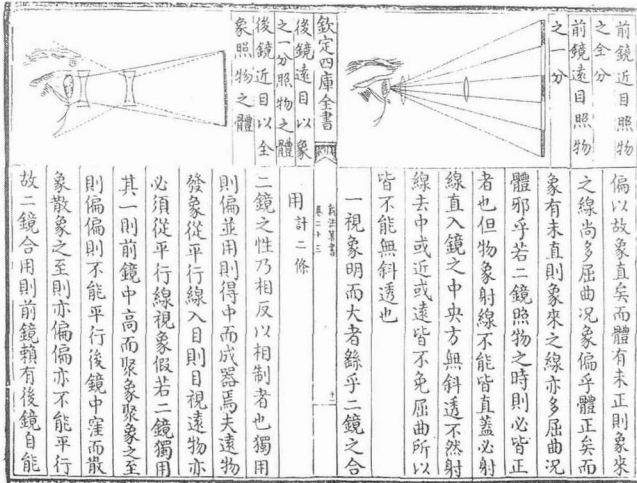 前鏡近目照物
之全分
前鏡遠目照物
之一分
偏以故象直矣而體有未正則象來
之線尚多屈曲况象偏乎體正矣而
象有未直則象來之線亦多屈曲况
體邪乎若二鏡照物之時則必皆正
者也但物象射線不能皆直蓋必射
線直入鏡之中央方無斜透不然射
線去中或近或遠皆不免屈曲所以
皆不能無斜透也
一視象明而大者繇乎二鏡之合
欽定四庫全書
新法算書
卷二十三
後鏡遠目以象
之一分照物之體
後鏡近目以全
象照物之體
用計二條
二鏡之性乃相反以相制者也獨用
則偏並用則得中而成器焉夫遠物
發象從平行線入目則目視遠物亦
必須從平行線視象假若二鏡獨用
其一則前鏡中高而聚象聚象之至
則偏偏則不能平行後鏡中窪而散
象散象之至則亦偏偏亦不能平行
故二鏡合用則前鏡賴有後鏡自能